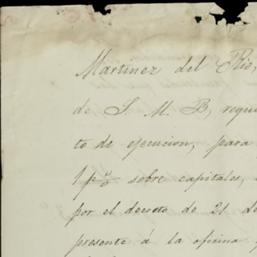 Martinez del Rio,
de S. M. B, requi
to de ejecucion, para
1 p% sobre capitales,
por el decreto de 21 de
presente á la oficina